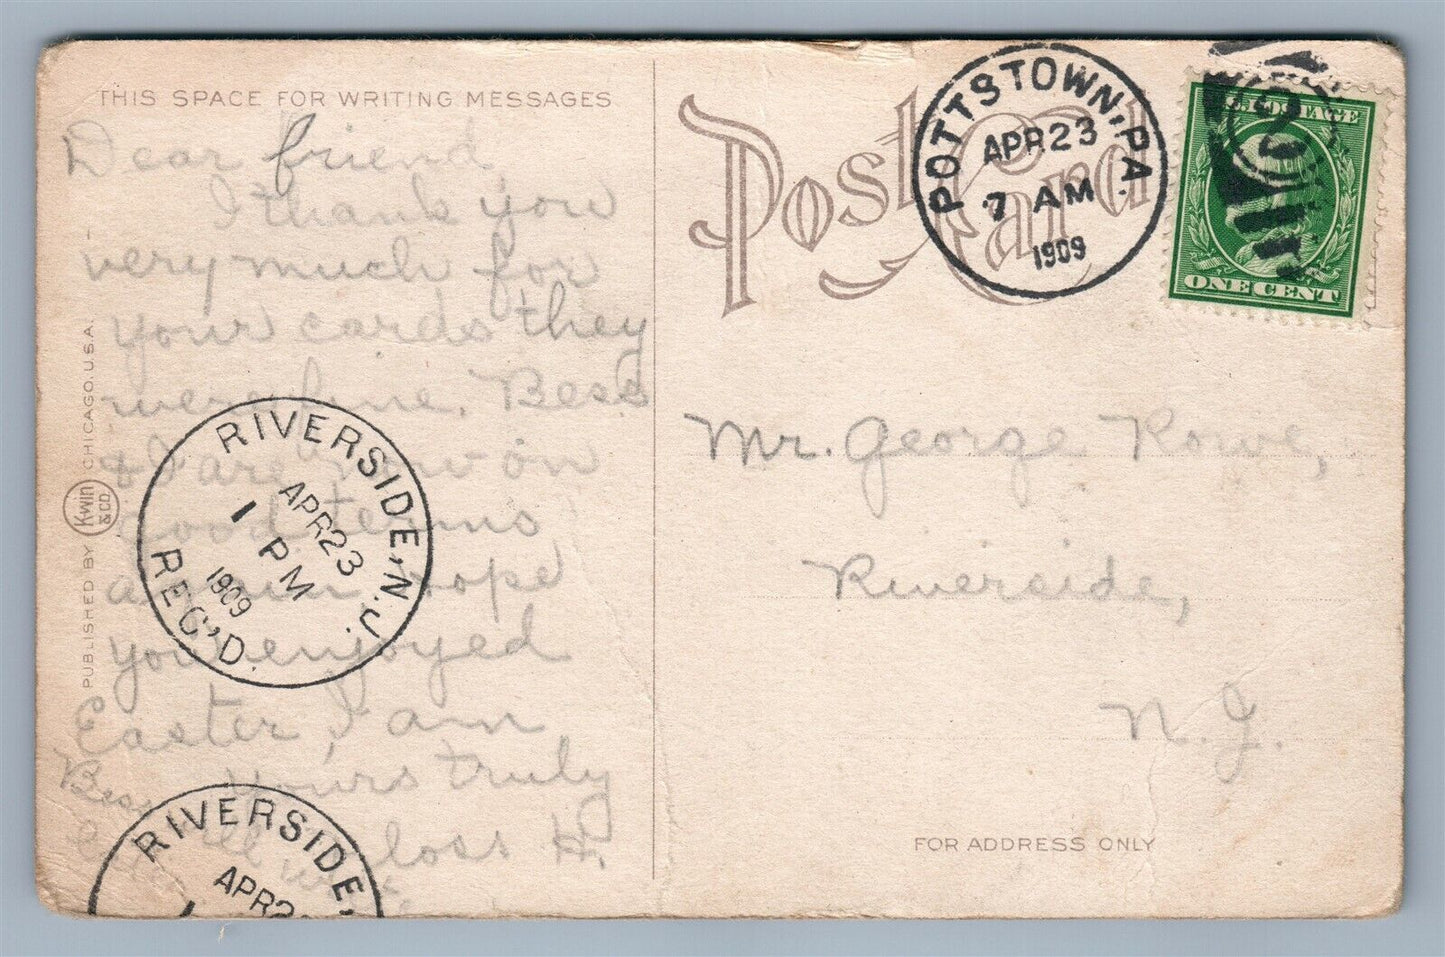 THIS SPACE FOR WRITING MESSAGES
Dear friend,
I thank you
very much for
your cards they
were fine. Bess
& I are now on
good terms
again hope
you enjoyed
Easter, I am
Yours truly
H.
Bess will
PUBLISHED BY Kwin & CO. CHICAGO. U.S.A.
RIVERSIDE, N.J.
APR 23
1 PM
1909
REC'D.
RIVERSIDE,
APR 2
Post Card
POTTSTOWN, PA.
APR 23
7 AM
1909
2
U.S. POSTAGE
ONE CENT
Mr. George Rowe,
Riverside,
N. J.
FOR ADDRESS ONLY